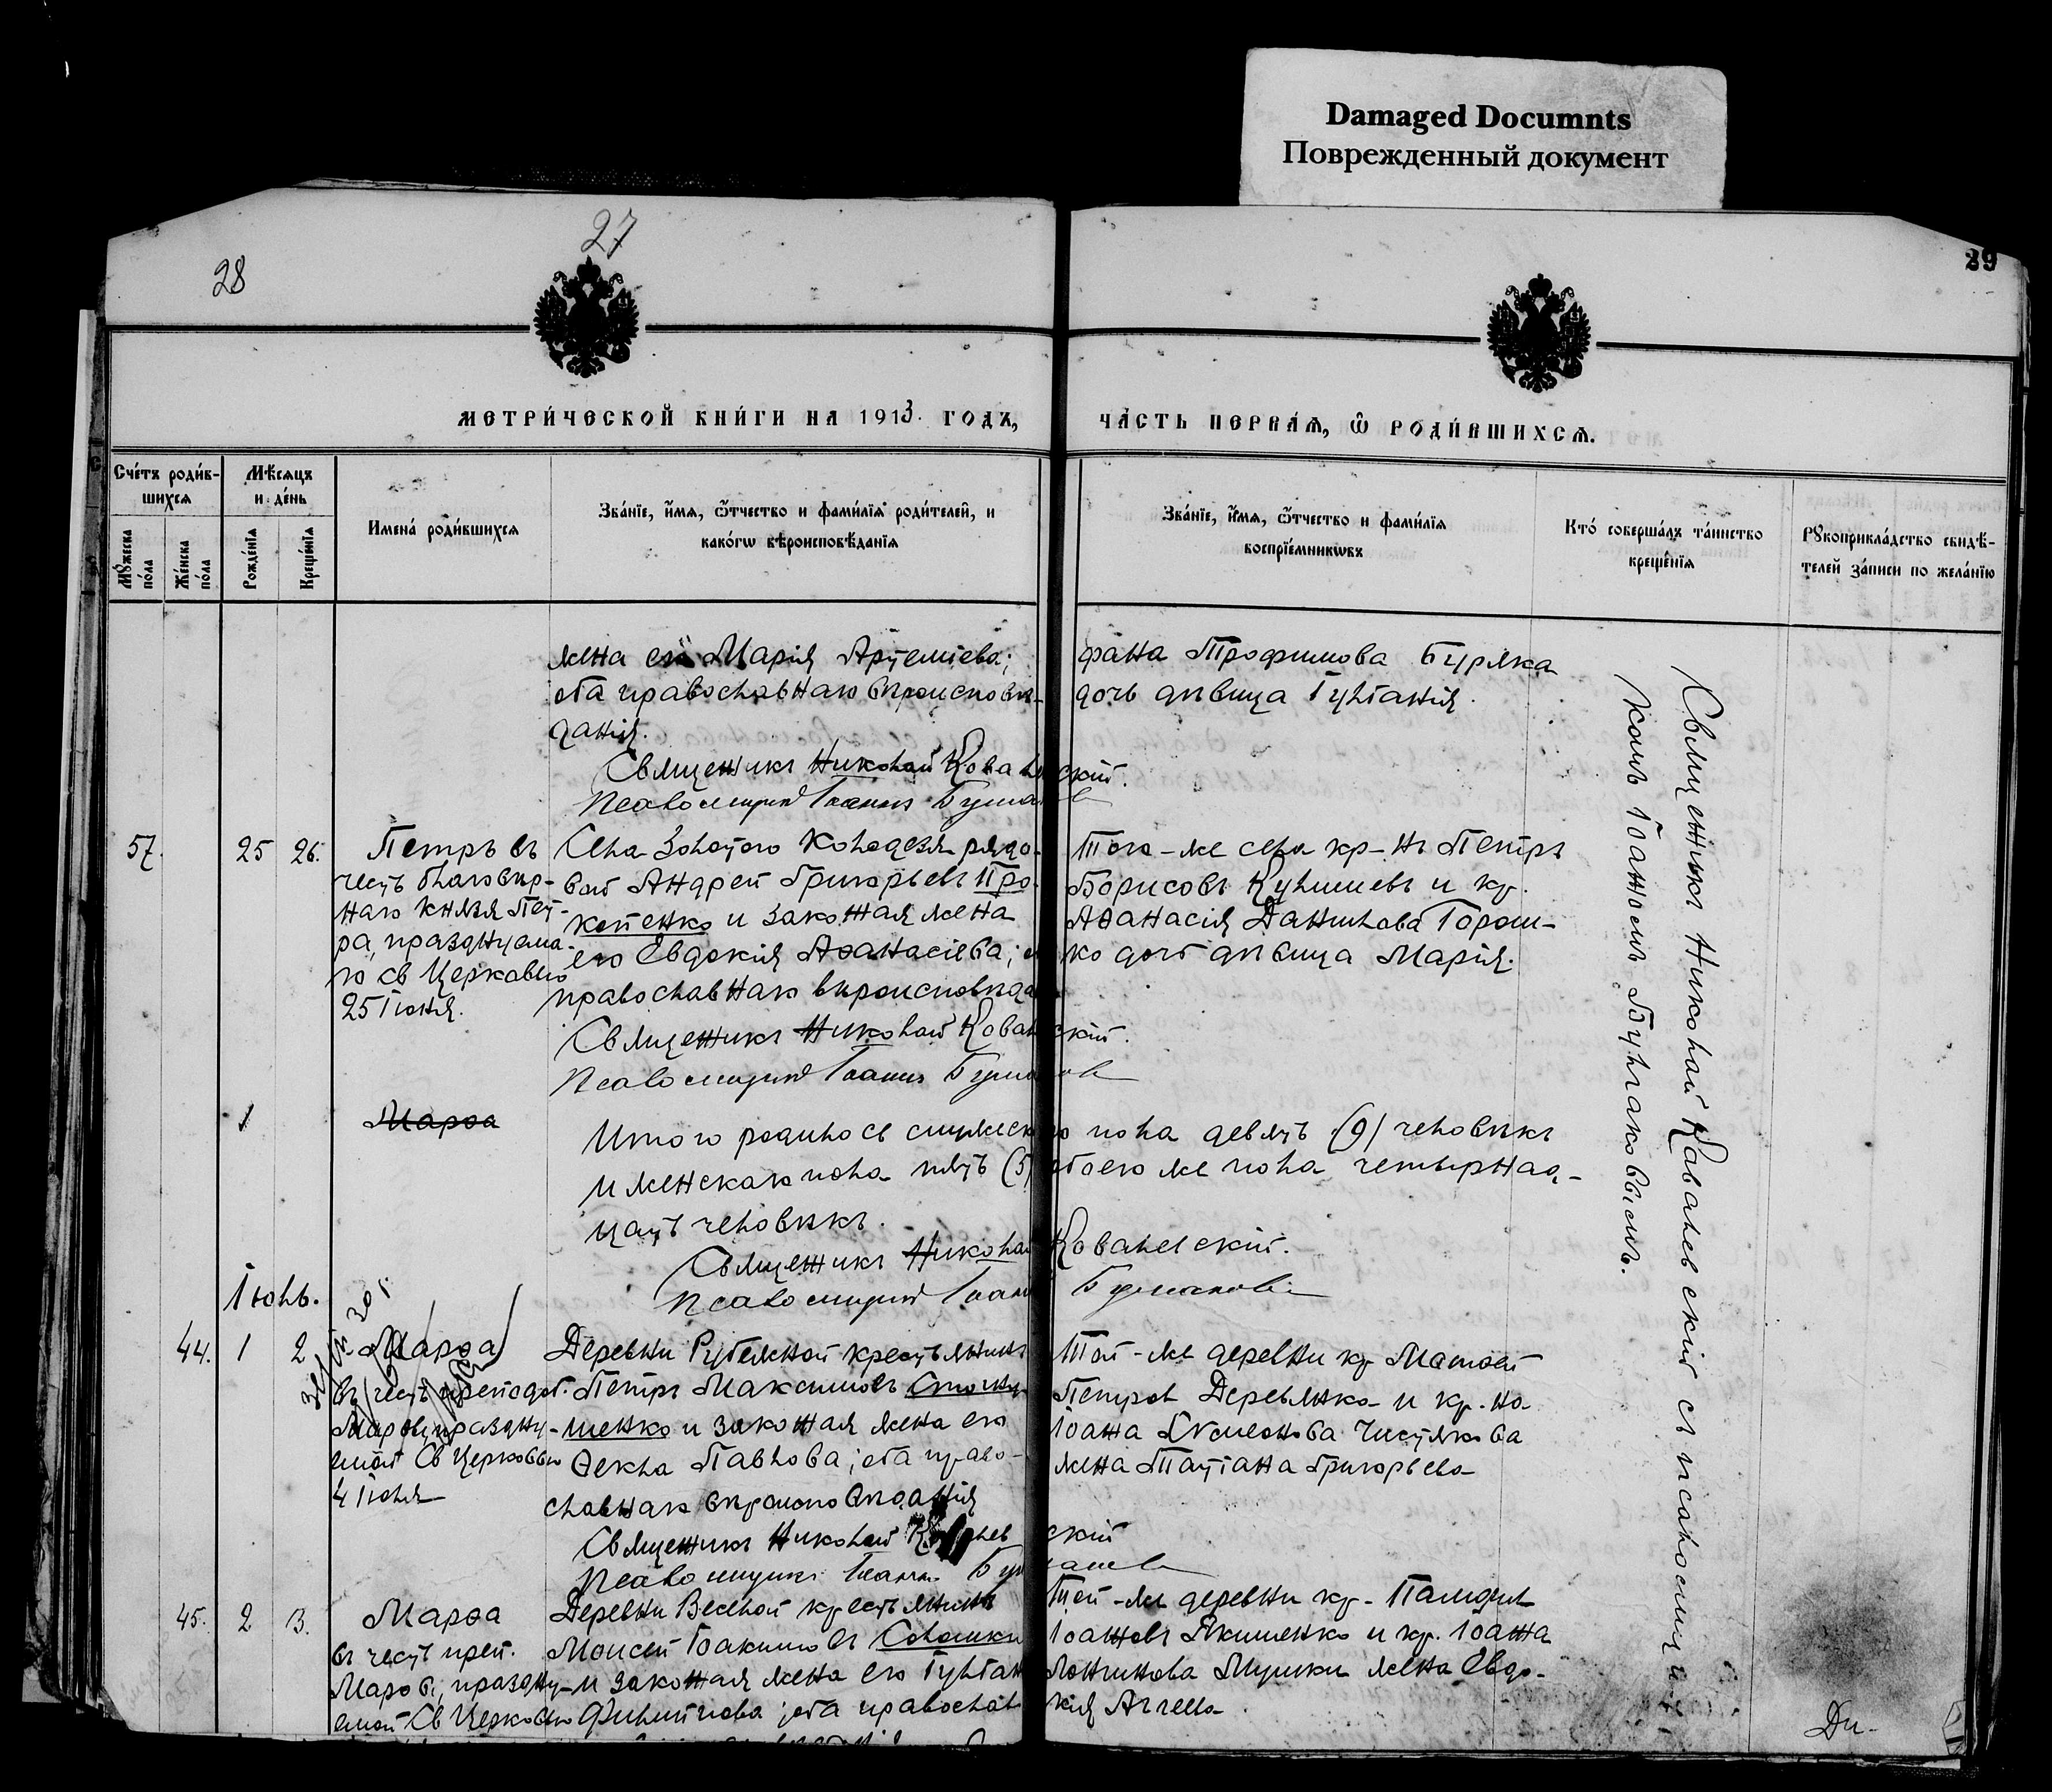 Damaged Documnts
Поврежденный документ
27
28
39
МЕТРИ́ЧЕСКОЙ КНИ́ГИ НА 1913. ГОДЪ,
ЧА́СТЬ ПЕРВА́Ѧ, Ѡ҆ РОДИ́ВШИХСѦ.
Сче́тъ роди́в-
шихсѧ
Мѣ́сѧцъ
и де́нь
Мꙋ́жеска
по́ла
Же́нска
по́ла
Рожде́нїѧ
Креще́нїѧ
Имена̀ роди́вшихсѧ
Зва́нїе, и҆́мѧ, ѻ҆́тчество и фами́лїѧ роди́телей, и
како́гѡ вѣроисповѣ́данїѧ
Зва́нїе, и҆́мѧ, ѻ҆́тчество и фами́лїѧ
воспрїе́мникѡвъ
Кто́ соверша́лъ та́инство
креще́нїѧ
Рꙋкоприкла́дство свидѣ́-
телей за́писи по жела́нїю
жена его Марія Артеміева;
оба православнаго вѣроисповѣ-
данія.
Священникъ Николай Ковалевскій.
Псаломщикъ Іоаннъ
фана Трофимова Буряка
дочь дѣвица Іуліанія.
57.
25 26.
Петръ въ
честь благовѣр-
наго князя Пет-
ра, празднуема-
го св Церковью
25 Іюня.
Села Золотого Колодезя рядо-
вой Андрей Григорьевъ Про-
копенко и законная жена
его Евдокія Аѳанасіева;
православнаго вѣроисповѣда
Священникъ Николай Ковалевскій.
Псаломщикъ Іоаннъ
Того-же села кр-нъ Петръ
Борисовъ Кулишевъ и кр.
Аѳанасія Данилова Горош-
ко дочь дѣвица Марія.
1
Марѳа
Итого родилось мужескаго пола девять (9) человѣкъ
и женскаго пола пять (5) обоего же пола четырнад-
цать человѣкъ.
Священникъ Николай Ковалевскій.
Псаломщикъ Іоаннъ
Священникъ Николай Ковалевскій съ псаломщи-
комъ Іоанномъ Булгаковымъ.
Іюль.
44. 1 2
Марѳа
въ честь преподоб.
Марѳы, праздну-
емой Св Церковью
4 Іюля
Деревни Рубежной крестьянинъ
Петръ Максимовъ
шенко и законная жена его
Ѳекла Павлова; оба право-
славнаго вѣроисповѣданія
Священникъ Николай Ковалевскій
Псаломщикъ Іоаннъ
Той-же деревни кр Матѳей
Петровъ Деревянко и кр. на
Іоанна Симеонова Чистякова
жена Татіана Григорьева
45. 2 3.
Марѳа
въ честь преп.
Марѳы, праздну-
емой Св Церковью
Деревни Веселой крестьянинъ
Моисей Іоакимовъ
и законная жена его Іуліан
Филиппова; оба православ
Той-же деревни кр.
Іоанновъ Якименко и кр. Іоанна
Логинова Мушки жена Евдо-
кія